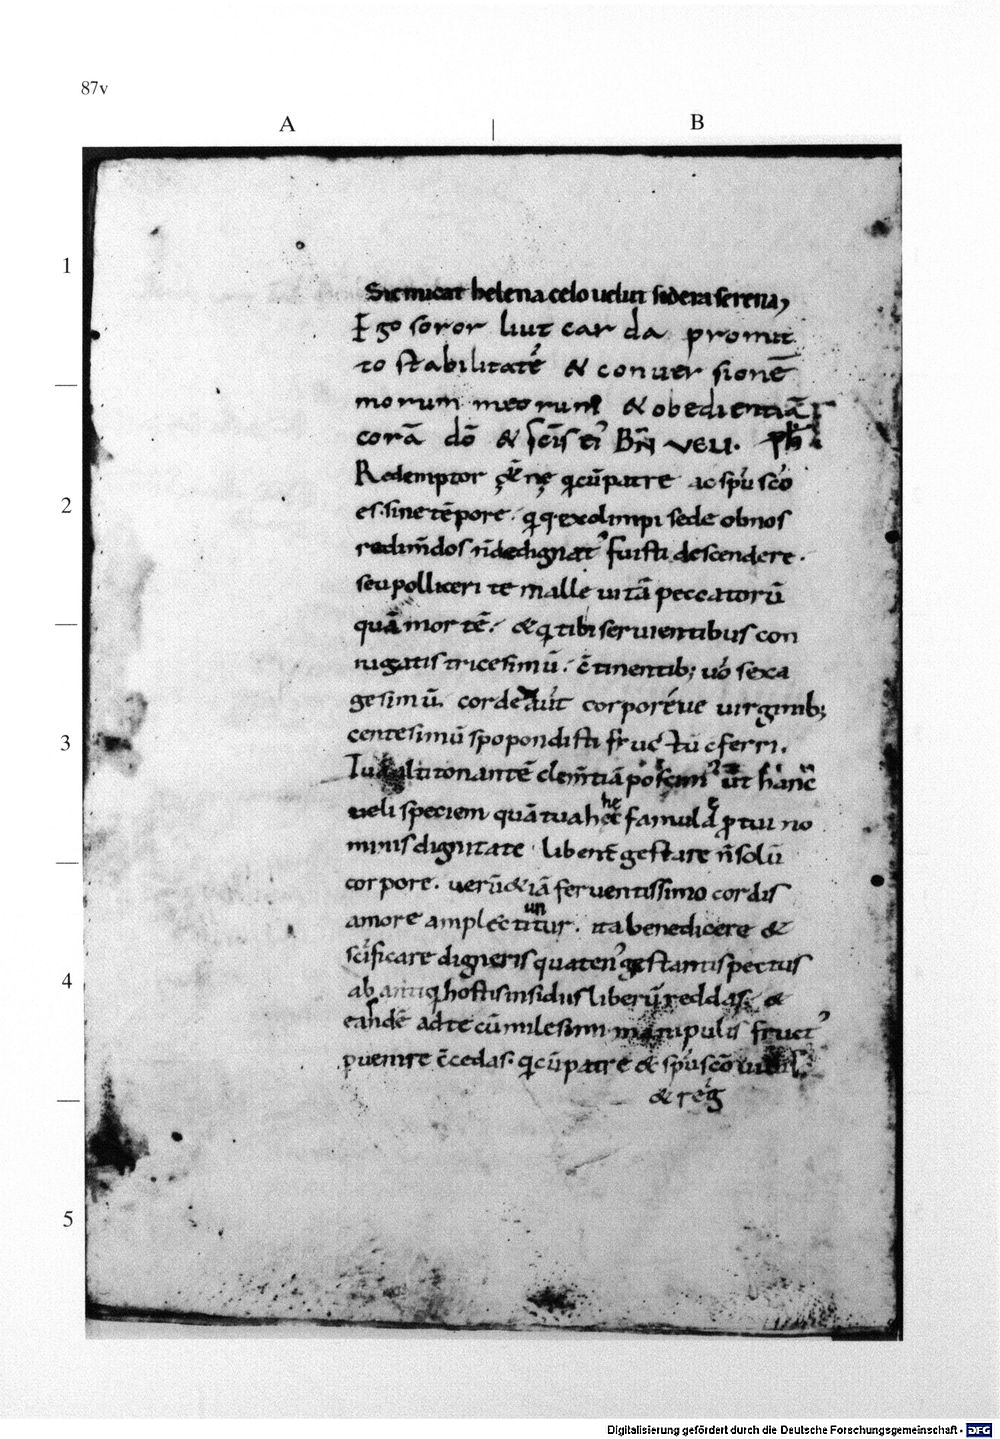 87v
A | B
1
2
3
4
5
Sic micat helena celo uelut sidera serena,
Ego soror liut car da promit
to stabilitatē & conuer sionē
morum meorum & obedientiā
corā dō & sc̄is ei' BN̄ VELI.
Redemptor qcūpatre ac spū scō
es. sine tēpore. qq. exolimpi sede obnos
redim̄dos n̄ dedignat' fuisti descendere.
seu polliceri te malle uitā peccatorū
quā mortē. & q tibi seruientibus con
iugatis tricesimū. c̄tinentib; uō sexa
gesimū. corde aut corporeue uirginib;
centesimū spopondisti fructū cferri.
Tuā altitonantē clem̄tiā poscim' ut hanc
ueli speciem quā tua hec famula p tui no
minis dignitate libent gestare n̄ solū
corpore. uerū & iā feruentissimo cordis
amore amplectitur. ita benedicere &
scificare digneris quaten' gestantis pectus
ab antiq hostis insidiis liberū reddas. &
eandē adte cū milesimi manipulis fruct'
puenire c̄cedas. qcūpatre & spū scō uiuis
& reg
Digitalisierung gefördert durch die Deutsche Forschungsgemeinschaft - DFG